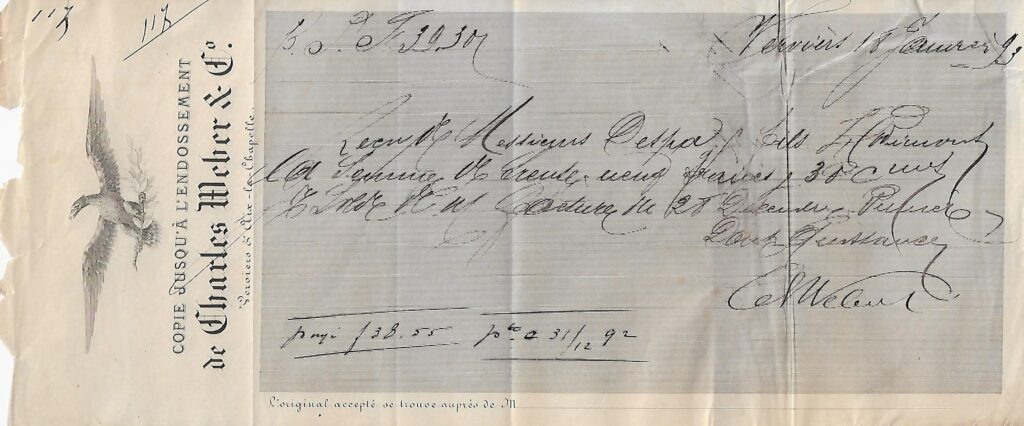 117
117
COPIE JUSQU'À L'ENDOSSEMENT
de Charles Weber & Cº.
Verviers & Aix-la-Chapelle
B. P. F 39.30
Verviers 18 Janvier 93
Reçu de Messieurs Despa & fils
La Somme de trente-neuf francs 30 cms
Facture du 28 Décembre
Dont Quittance
Ch Weber
payé f 38.55 pte a 31/12 92
L'original accepté se trouve auprès de M